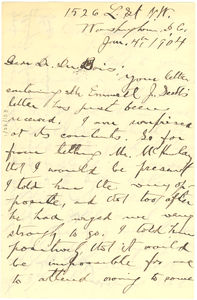 1526 L St N.W.
Washington D.C.
Jan. 4th 1904
Dear Dr. Du Bois:
Your letter
containing Mr Emmett J. Scott's
letter has just been
received. I am surprised
at its contents. So far
from telling Mr.
that I would be present
I told him the very op-
posite, and that too after
he had urged me very
strongly to go. I told him
positively that it would
be impossible for me
to attend owing to some